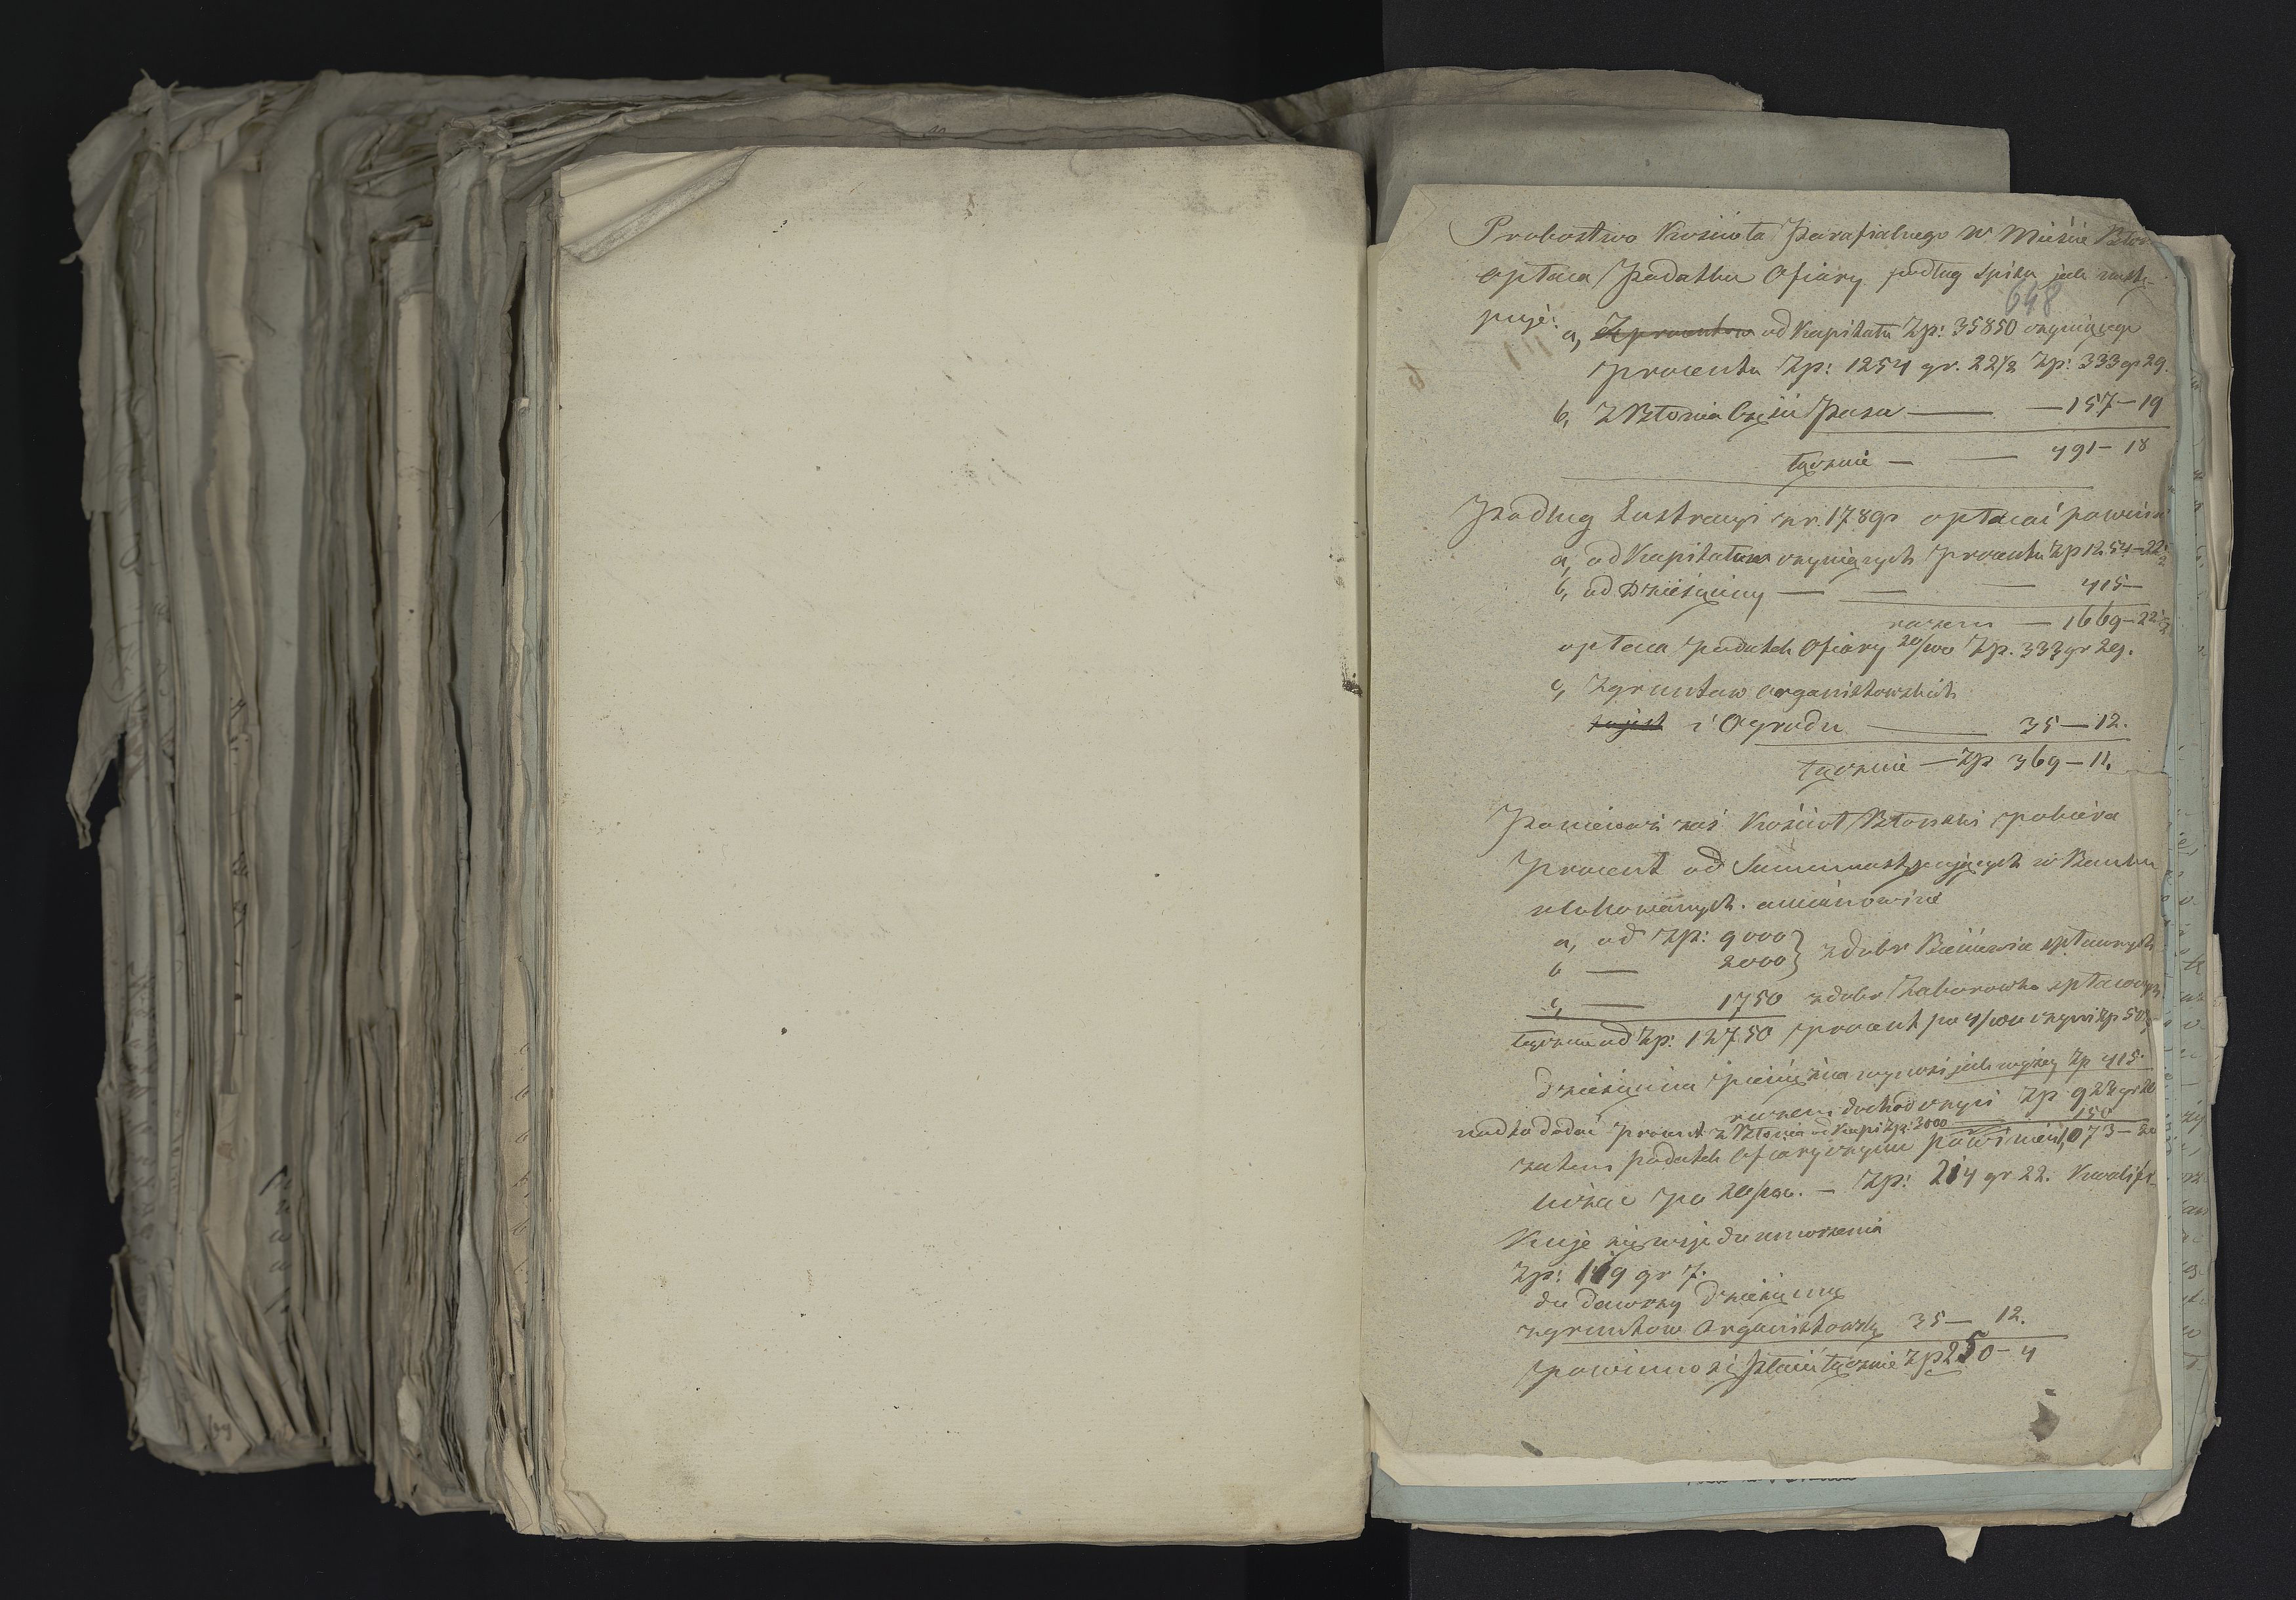 Probostwo Kościoła Parafialnego w Mieście Błon
opłaca Podatku Ofiary podług spisu jak nastę-
648
puje:
a, Zprocentow od Kapitału Zp: 35850 czyniącego
procentu Zp: 1254 gr. 22 1/2 Zp: 333 gr 29.
b, Z Błonia Części Pasu — — 157 — 19
łącznie — — 491 — 18
Podług Lustracyi z r. 1789 opłacać powinno
a, od Kapitałów czyniących procentu Zp 1254 — 22 1/2
b, od Dziesięciny — — — 415 —
razem — 1669 — 22 1/2
opłaca podatek Ofiary 20/100 Zp. 333 gr 29.
c, Z gruntów organistowskich
i Ogrodu — 35 — 12.
łącznie — Zp 369 — 11.
Ponieważ zaś Kościół Błonski pobiera
procent od Summ następujących w Banku
ulokowanych. a mianowicie
a, od Zp: 9000 } z dobr Bieniewic spłaconych
b — 2000
c, — 1750 z dobr Zaborowka spłaconych
łącznie od Zp: 12750 procent po 4/100 czyni Zp 50
dziesięcina pieniężna wynosi jak wyżey Zp 415
razem dochód czyni Zp 924 gr 20
nadto dodać procent z Błonia od Kapi Zp: 3000 — 150
1,073 — 20
zatem podatek Ofiary czynić powinien
licząc po 20/100. — Zp: 214 gr 22. Kwalifi-
kuje się więc do umorzenia
Zp: 119 gr 7.
dodawszy dziesięcinę
z gruntow Organistowsk 35 — 12.
powinno się płacić łącznie Zp 250 — 4